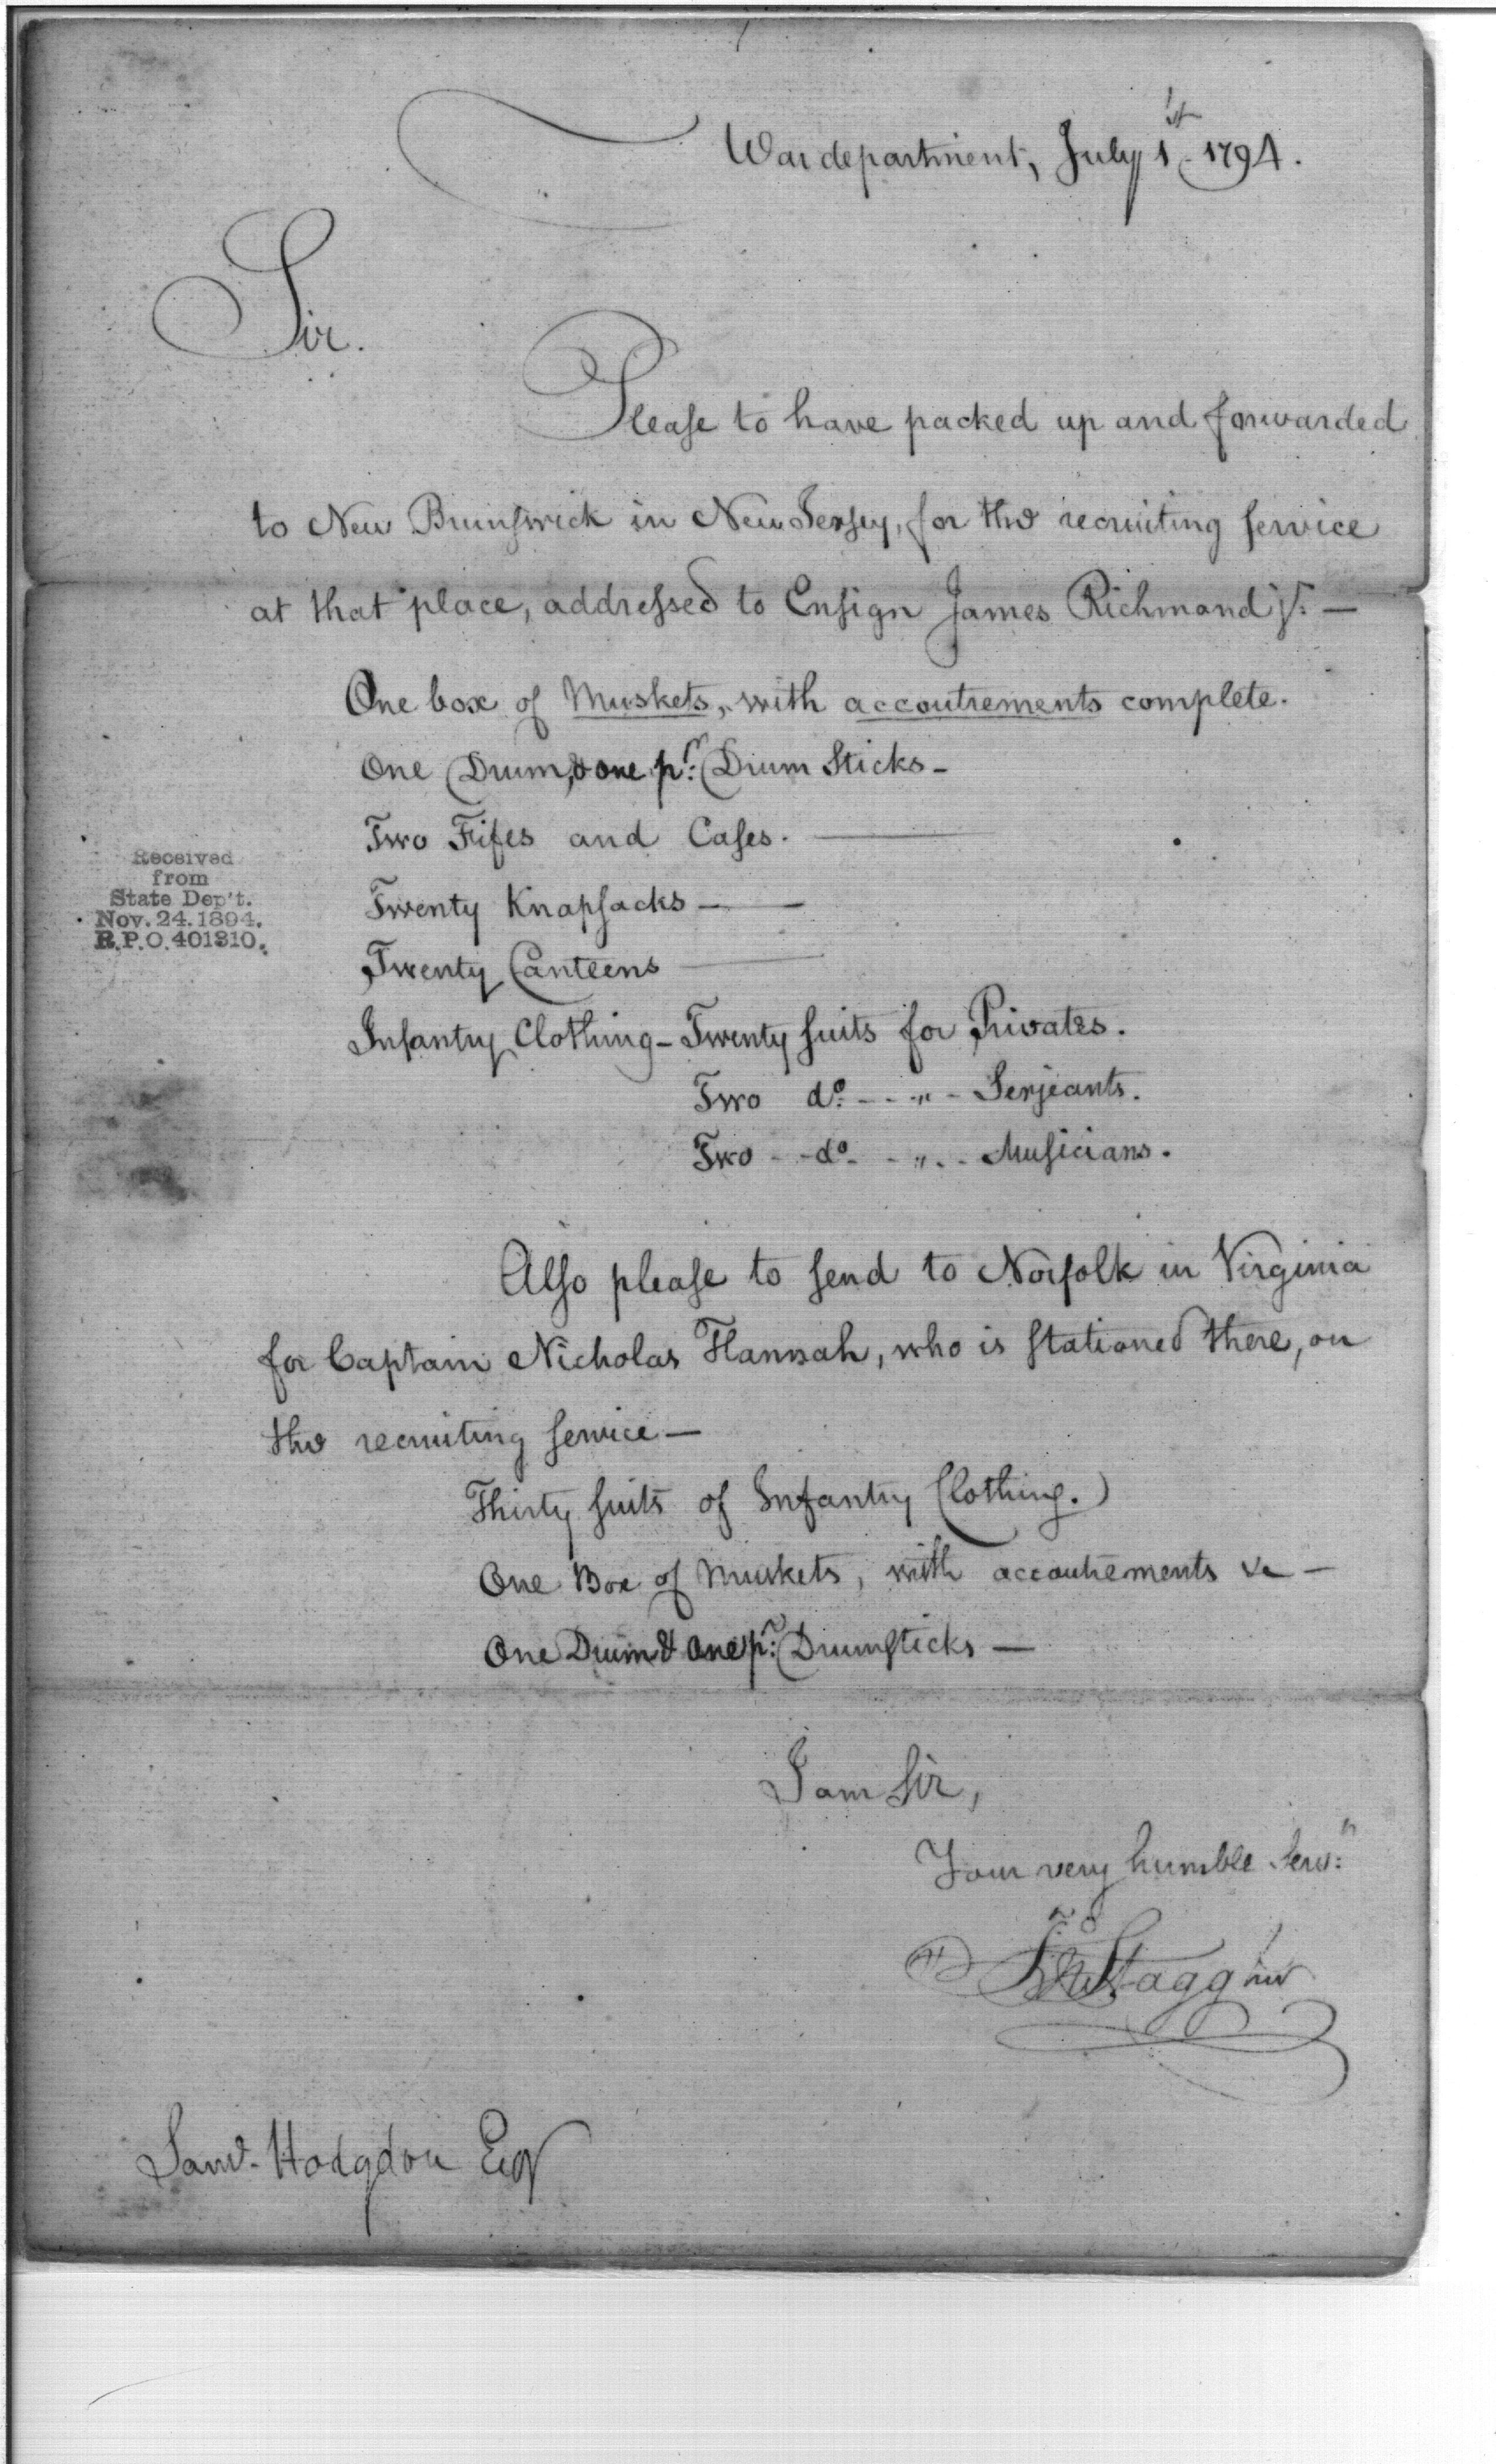 War department, July 1st 1794.
Sir.
Please to have packed up and forwarded
to New Brunswick in New Jersey, for the recruiting service
at that place, addressed to Ensign James Richmond Jr. —
One box of Muskets, with accoutrements complete.
One Drum, & one pr. Drum Sticks —
Two Fifes and Cases. —
Twenty Knapsacks —
Twenty Canteens —
Infantry Clothing — Twenty suits for Privates.
Two do. - - " - Serjeants.
Two - - do - - " - - Musicians.
Received
from
State Dep't.
Nov. 24. 1894.
R.P.O. 401310.
Also please to send to Norfolk in Virginia
for Captain Nicholas Hannah, who is stationed there, on
the recruiting service —
Thirty suits of Infantry Clothing.
One Box of Muskets, with accoutrements &c —
One Drum & One pr. Drumsticks —
I am Sir,
Your very humble Servt.
Jno Stagg Jur
Saml. Hodgdon Esqr